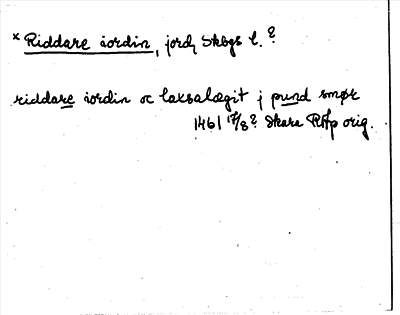 × Riddare iordin, jord, Skogs l. ?
riddare iordin oc laxsalægit j pund smør
1461 17/8? Skara RAp orig.